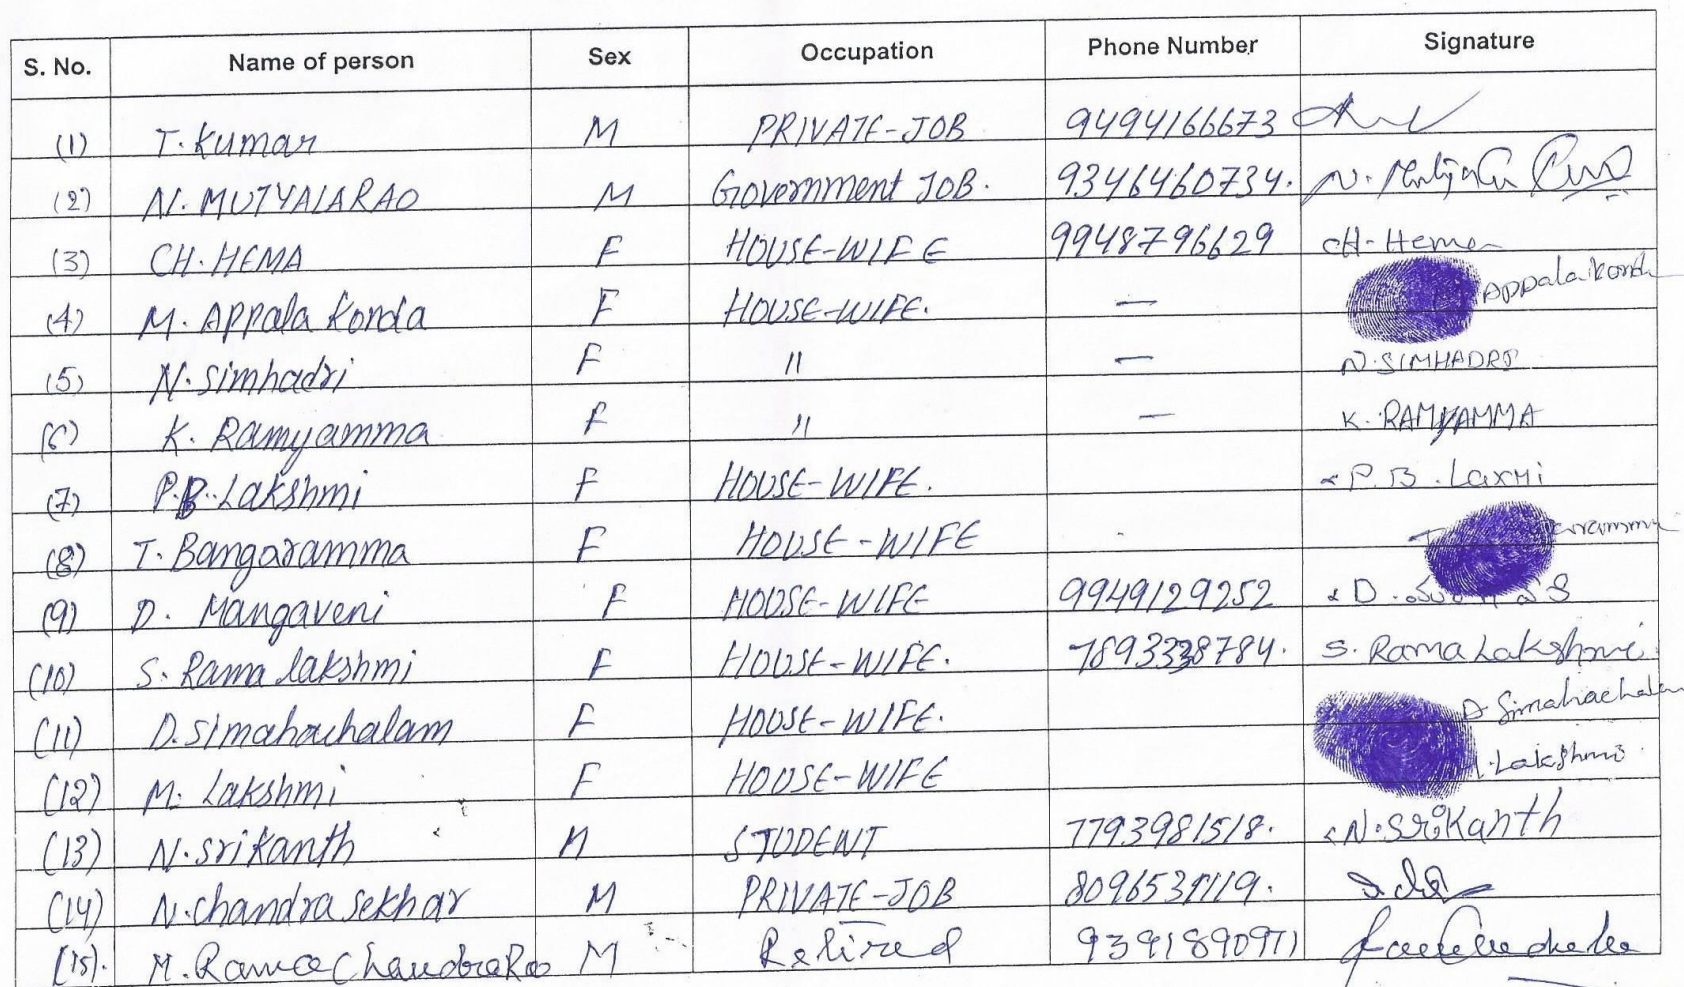 S. No. Name of person Sex Occupation Phone Number Signature
(1) T. Kumar M PRIVATE-JOB 9494166673
(2) N. MUTYALARAO M Government JOB. 9346460734. N.
(3) CH. HEMA F HOUSE-WIFE 9948796629 CH-Hema
(4) M. Appala Konda F HOUSE-WIFE. — Appalakonda
(5) N. Simhadri F " — N. SIMHADRI
(6) K. Ramyamma F " — K. RAMYAMMA
(7) P.B. Lakshmi F HOUSE-WIFE. P. B. Laxmi
(8) T. Bangaramma F HOUSE-WIFE
(9) D. Mangaveni F HOUSE-WIFE 9949129252 D.
(10) S. Rama lakshmi F HOUSE-WIFE. 7893338784. S. Rama Lakshmi
(11) D. Simahachalam F HOUSE-WIFE. D Simahachalam
(12) M. Lakshmi F HOUSE-WIFE Lakshmi
(13) N. Srikanth M STUDENT 7793981518. N. Srikanth
(14) N. chandra sekhar M PRIVATE-JOB
(15). M. Rama Chandra Rao M Retired